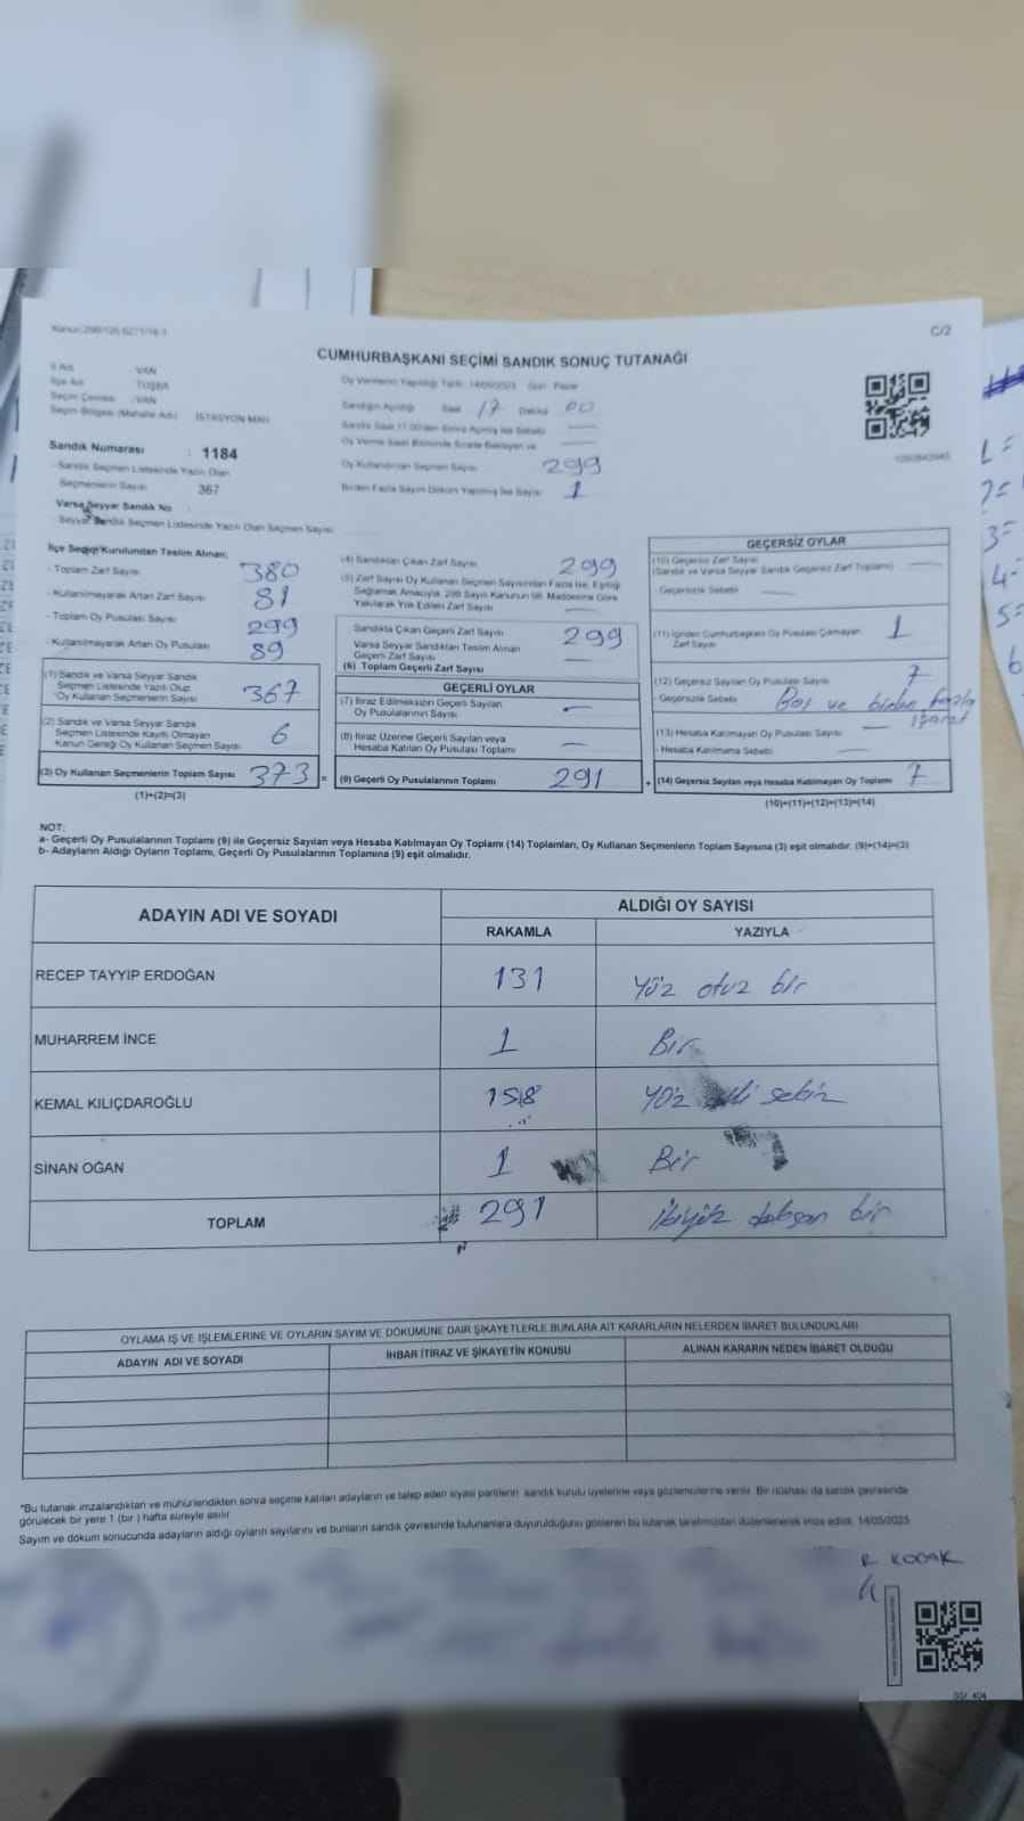 C/2
CUMHURBAŞKANI SEÇİMİ SANDIK SONUÇ TUTANAĞI
İl Adı : VAN
İlçe Adı : TUŞBA
Seçim Çevresi : VAN
Seçim Bölgesi (Mahalle Adı) : İSTASYON MAH.
Sandık Numarası : 1184
Sandık Seçmen Listesinde Yazılı Olan
Seçmenlerin Sayısı : 367
Varsa Seyyar Sandık No
Seyyar Sandık Seçmen Listesinde Yazılı Olan Seçmen Sayısı
Sandığın Açıldığı Saat 17 Dakika 00
Oy Kullandıran Seçmen Sayısı 299
Birden Fazla Sayım Döküm Yapılmış İse Sayısı 1
İlçe Seçim Kurulundan Teslim Alınan;
- Toplam Zarf Sayısı 380
- Kullanılmayarak Artan Zarf Sayısı 81
- Toplam Oy Pusulası Sayısı 299
- Kullanılmayarak Artan Oy Pusulası 89
(1) Sandık ve Varsa Seyyar Sandık
Seçmen Listesinde Yazılı Olup
Oy Kullanan Seçmenlerin Sayısı 367
(2) Sandık ve Varsa Seyyar Sandık
Seçmen Listesinde Kayıtlı Olmayan
Kanun Gereği Oy Kullanan Seçmen Sayısı 6
(3) Oy Kullanan Seçmenlerin Toplam Sayısı 373 =
(1)+(2)=(3)
(4) Sandıktan Çıkan Zarf Sayısı 299
(5) Zarf Sayısı Oy Kullanan Seçmen Sayısından Fazla İse, Eşitliği
Sağlamak Amacıyla, 298 Sayılı Kanunun 98. Maddesine Göre
Yakılarak Yok Edilen Zarf Sayısı
Sandıkta Çıkan Geçerli Zarf Sayısı 299
Varsa Seyyar Sandıktan Teslim Alınan
Geçerli Zarf Sayısı
(6) Toplam Geçerli Zarf Sayısı
GEÇERLİ OYLAR
(7) İtiraz Edilmeksizin Geçerli Sayılan
Oy Pusulalarının Sayısı —
(8) İtiraz Üzerine Geçerli Sayılan veya
Hesaba Katılan Oy Pusulası Toplamı —
(9) Geçerli Oy Pusulalarının Toplamı 291 +
GEÇERSİZ OYLAR
(10) Geçersiz Zarf Sayısı
(Sandık ve Varsa Seyyar Sandık Geçersiz Zarf Toplamı) —
- Geçersizlik Sebebi —
(11) İçinden Cumhurbaşkanı Oy Pusulası Çıkmayan
Zarf Sayısı 1
(12) Geçersiz Sayılan Oy Pusulası Sayısı 7
- Geçersizlik Sebebi Boş ve birden fazla
işaret
(13) Hesaba Katılmayan Oy Pusulası Sayısı —
- Hesaba Katılmama Sebebi —
(14) Geçersiz Sayılan veya Hesaba Katılmayan Oy Toplamı 7
(10)+(11)+(12)+(13)=(14)
NOT:
a- Geçerli Oy Pusulalarının Toplamı (9) ile Geçersiz Sayılan veya Hesaba Katılmayan Oy Toplamı (14) Toplamları, Oy Kullanan Seçmenlerin Toplam Sayısına (3) eşit olmalıdır. (9)+(14)=(3)
b- Adayların Aldığı Oyların Toplamı, Geçerli Oy Pusulalarının Toplamına (9) eşit olmalıdır.
ADAYIN ADI VE SOYADI
ALDIĞI OY SAYISI
RAKAMLA YAZIYLA
RECEP TAYYİP ERDOĞAN 131 Yüz otuz bir
MUHARREM İNCE 1 Bir
KEMAL KILIÇDAROĞLU 158 Yüz elli sekiz
SİNAN OĞAN 1 Bir
TOPLAM 291 ikiyüz doksan bir
OYLAMA İŞ VE İŞLEMLERİNE VE OYLARIN SAYIM VE DÖKÜMÜNE DAİR ŞİKAYETLERLE BUNLARA AİT KARARLARIN NELERDEN İBARET BULUNDUKLARI
ADAYIN ADI VE SOYADI İHBAR İTİRAZ VE ŞİKAYETİN KONUSU ALINAN KARARIN NEDEN İBARET OLDUĞU
*Bu tutanak imzalandıktan ve mühürlendikten sonra seçime katılan adayların ve talep eden siyasi partilerin sandık kurulu üyelerine veya gözlemcilerine verilir. Bir nüshası da sandık çevresinde
görülecek bir yere 1 (bir) hafta süreyle asılır.
Sayım ve döküm sonucunda adayların aldığı oyların sayılarını ve bunların sandık çevresinde bulunanlara duyurulduğunu gösteren bu tutanak tarafımızdan düzenlenerek imza edildi. 14/05/2023
R KOÇAK
1=
2=
3=
4-
5=
6